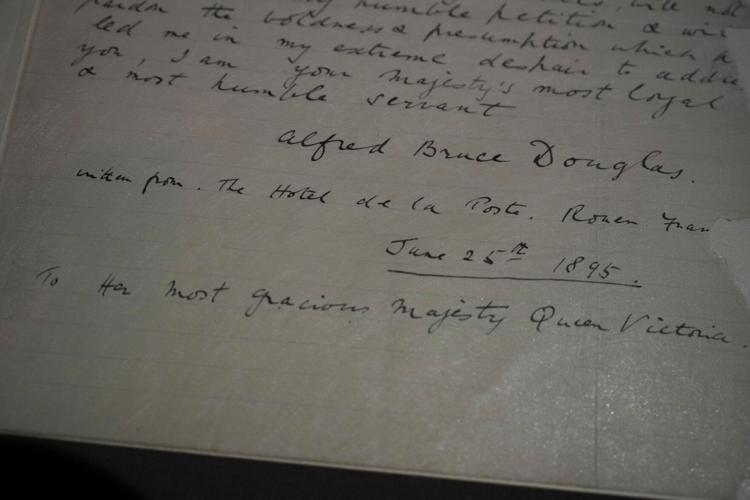 my humble petition & will
pardon the boldness & presumption which h
led me in my extreme despair to addre
you, I am your Majesty's most loyal
& most humble servant
Alfred Bruce Douglas.
written from. The Hotel de la Poste. Rouen Fran
June 25th 1895.
To Her Most gracious Majesty Queen Victoria.